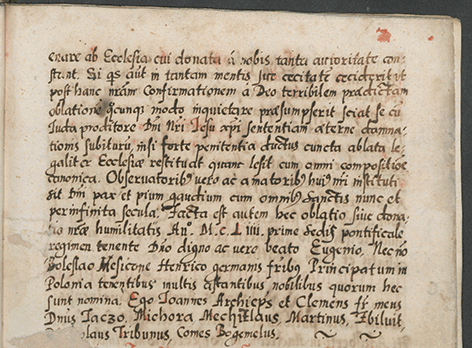 enare ab Ecclesia cui donata à nobis tanta autoritate con-
stant. Si qs aut in tantam mentis sue cecitate ceciderit vt
post hanc nram Confirmationem à Deo terribilem prædictam
oblatione qcunque modo inquietare præsumpserit sciat se cū
Iuda proditore Dni Nri Iesu xpi sententiam æterne damna-
tionis subiturū, nisi forte penitentia ductus cuncta ablata le-
galiter Ecclesiæ restituat quam lesit cum omni compositioe
canonica. Observatoribus vero ac amatoribus huius nri instituti
sit Dni pax et pium gaudium cum omnibus Sanctis nunc et
perinfinita secula. Facta est autem hec oblatio siue dona-
tio nræ humilitatis An. M. C. L iiii. prime sedis pontificale
regimen tenente Dño digno ac vere beato Eugenio. Necño
Boleslao Mesicone Henrico germanis fribus Principatum in
Polonia tenentibus multis astantibus nobilibus quorum hec
sunt nomina. Ego Ioannes Archieps et Clemens fr meus
Dnis Iaczo, Michora Mechislaus, Martinus, Philuit,
laus Tribunus, Comes Bogemelus.